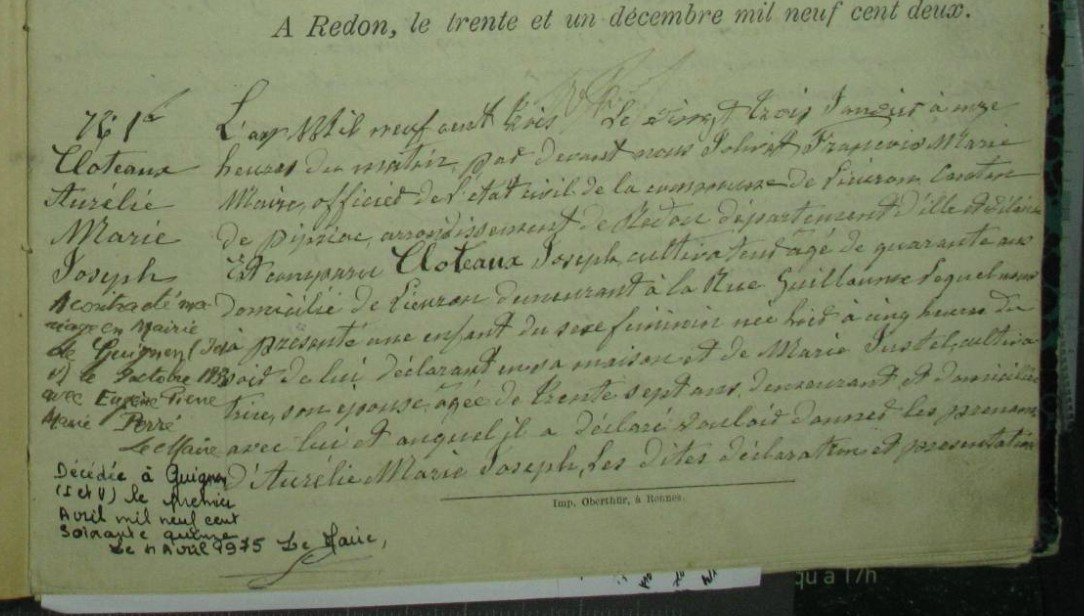 A Redon, le trente et un décembre mil neuf cent deux.
Cloteaux
Aurélie
Marie
Joseph
A contracté ma-
riage en Mairie
de Guignen (I et
V) le 9 octobre
avec Eugène Pierre
Marie Perré
Le Maire
Décédée à Guignen
(I et V) le premier
Avril mil neuf cent
soixante quinze
Le Avril 1975 Le Maire,
L'an Mil neuf cent trois Le vingt trois Janvier à onze
heures du matin, par devant nous François Marie
Maire, officier de l'état civil de la commune de Lieuron, Canton
de Pipriac, arrondissement de Redon département d'Ille et Vilaine
Est comparu Cloteaux Joseph, cultivateur âgé de quarante ans
domicilié de Lieuron demeurant à la Rue Guillaume lequel nous
a présenté une enfant du sexe féminin née hier à cinq heures du
soir de lui déclarant en sa maison et de Marie Justel, cultiva-
trice, son épouse, âgée de trente sept ans, demeurant et domiciliée
avec lui et auquel il a déclaré vouloir donner les prénoms
d'Aurélie Marie Joseph, Les dites déclaration et présentation
Imp. Oberthür, à Rennes.
qu'à 17h